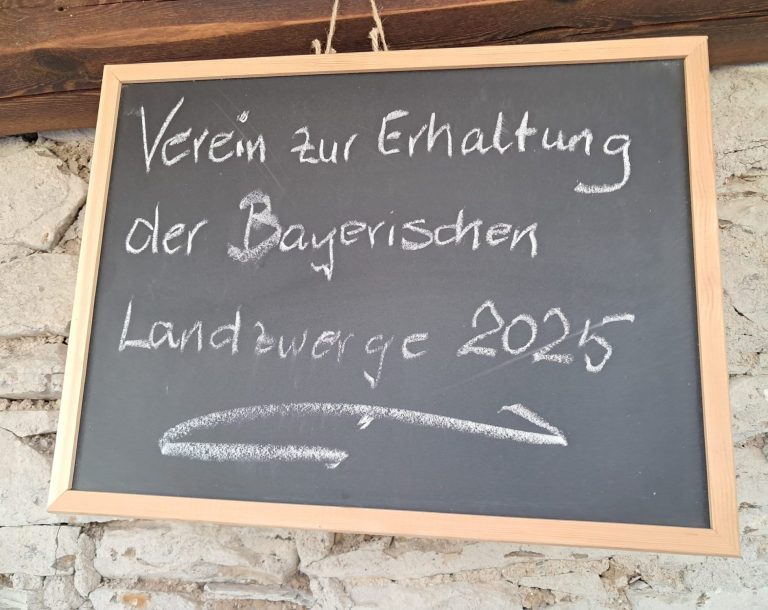 Verein zur Erhaltung
der Bayerischen
Landzwerge 2025